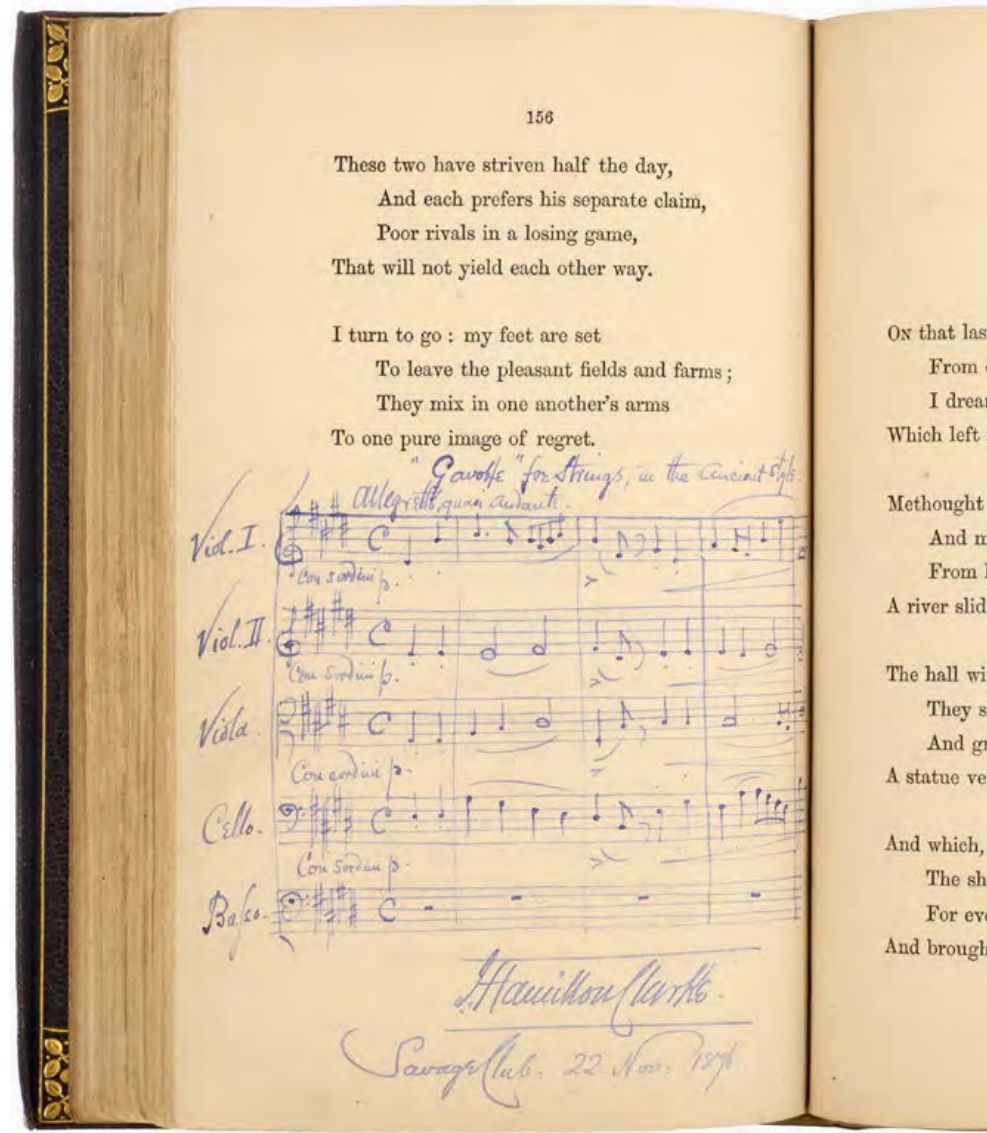 156
These two have striven half the day,
And each prefers his separate claim,
Poor rivals in a losing game,
That will not yield each other way.
I turn to go : my feet are set
To leave the pleasant fields and farms ;
They mix in one another's arms
To one pure image of regret.
"Gavotte" for Strings, in the Ancient Style.
Allegretto, quasi Andante.
Viol. I.
Con sordini p.
Viol. II.
Con Sordini p.
Viola
Con sordini p.
Cello.
Con Sordini p.
Basso.
J Hamilton Clarke.
Savage Club. 22. Nov. 1876
ON that las
From
I drea
Which left
Methought
And m
From
A river slid
The hall wi
They s
And g
A statue ve
And which,
The sh
For eve
And brough